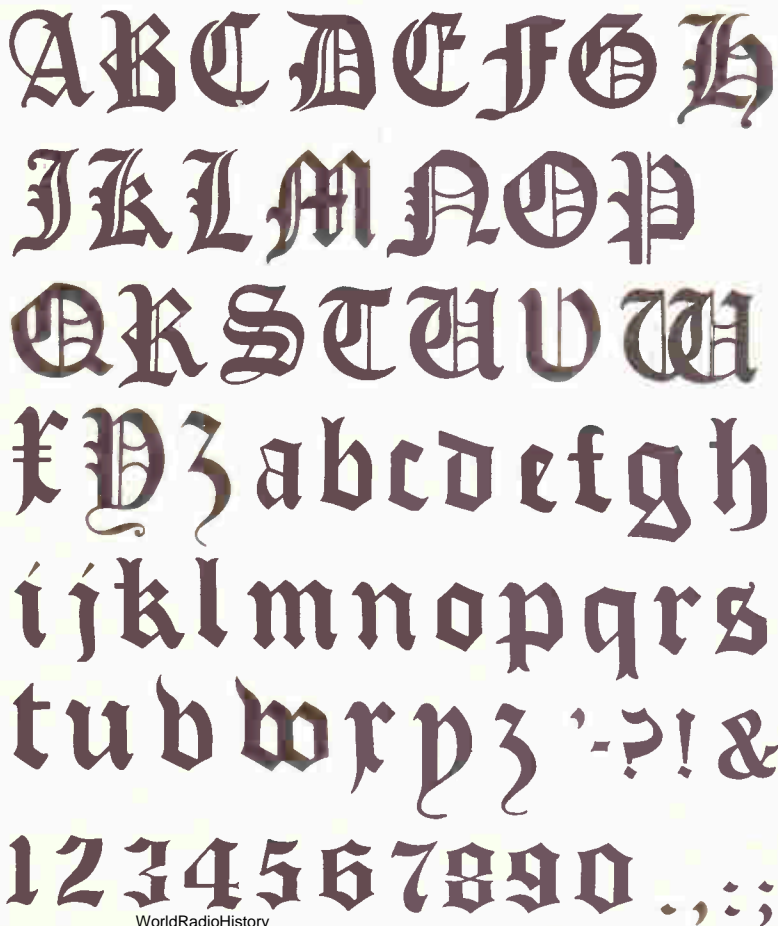 A B C D E F G H
I K L M N O P
Q R S T U V W
X Y Z a b c d e f g h
i j k l m n o p q r s
t u v w x y z ' - ? ! &
1 2 3 4 5 6 7 8 9 0 . , : ;
WorldRadioHistory